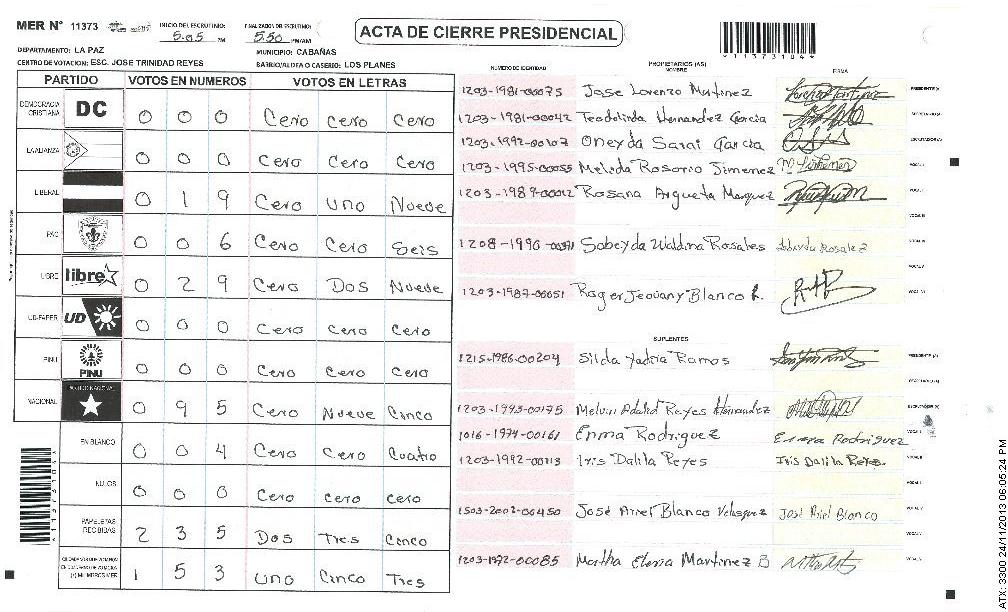 MER N° 11373
INICIO DEL ESCRUTINIO: 5:05 PM
FINALIZACION DEL ESCRUTINIO: 5:50 PM/AM
ACTA DE CIERRE PRESIDENCIAL
*11373104*
DEPARTAMENTO: LA PAZ
MUNICIPIO: CABAÑAS
CENTRO DE VOTACION: ESC. JOSE TRINIDAD REYES
BARRIO/ALDEA O CASERIO: LOS PLANES
PARTIDO VOTOS EN NUMEROS VOTOS EN LETRAS
DEMOCRACIA CRISTIANA DC 0 0 0 Cero Cero Cero
LA ALIANZA 0 0 0 Cero Cero Cero
LIBERAL 0 1 9 Cero Uno Nueve
PAC 0 0 6 Cero Cero Seis
LIBRE libre 0 2 9 Cero Dos Nueve
UD-FAPER UD 0 0 0 Cero Cero Cero
PINU PINU 0 0 0 Cero Cero Cero
NACIONAL PARTIDO NACIONAL 0 9 5 Cero Nueve Cinco
EN BLANCO 0 0 4 Cero Cero Cuatro
NULOS 0 0 0 Cero Cero Cero
PAPELETAS RECIBIDAS 2 3 5 Dos Tres Cinco
1 5 3 Uno Cinco Tres
NUMERO DE IDENTIDAD PROPIETARIOS (AS) NOMBRE FIRMA
1203-1981-00075 Jose Lorenzo Martinez PRESIDENTE (A)
1203-1981-00042 Teodolinda Hernandez Garcia SECRETARIO (A)
1203-1992-00107 Oneyda Sarai Garcia ESCRUTADOR (A)
1203-1995-00055 Melida Rosario Jimenez VOCAL I
1203-1989-00012 Rosana Argueta Marquez VOCAL II
VOCAL III
Sobeyda Waldina Rosales VOCAL IV
VOCAL V
1203-1987-00051 Roger Jeovany Blanco L. VOCAL VI
SUPLENTES
1215-1986-00204 Silda Yadira Ramos PRESIDENTE (A)
SECRETARIO (A)
1203-1993-00175 Melvin Adalid Reyes Hernandez ESCRUTADOR (A)
1016-1974-00161 Enma Rodriguez Enma Rodriguez VOCAL I
1203-1992-00113 Iris Dalila Reyes Iris Dalila Reyes VOCAL II
VOCAL III
1503-2002-00450 José Ariel Blanco Velasquez José Ariel Blanco VOCAL IV
VOCAL V
1203-1972-00085 Martha Elena Martinez B VOCAL VI
*11373104*
ATX: 3300 24/11/2013 06:05:24 PM